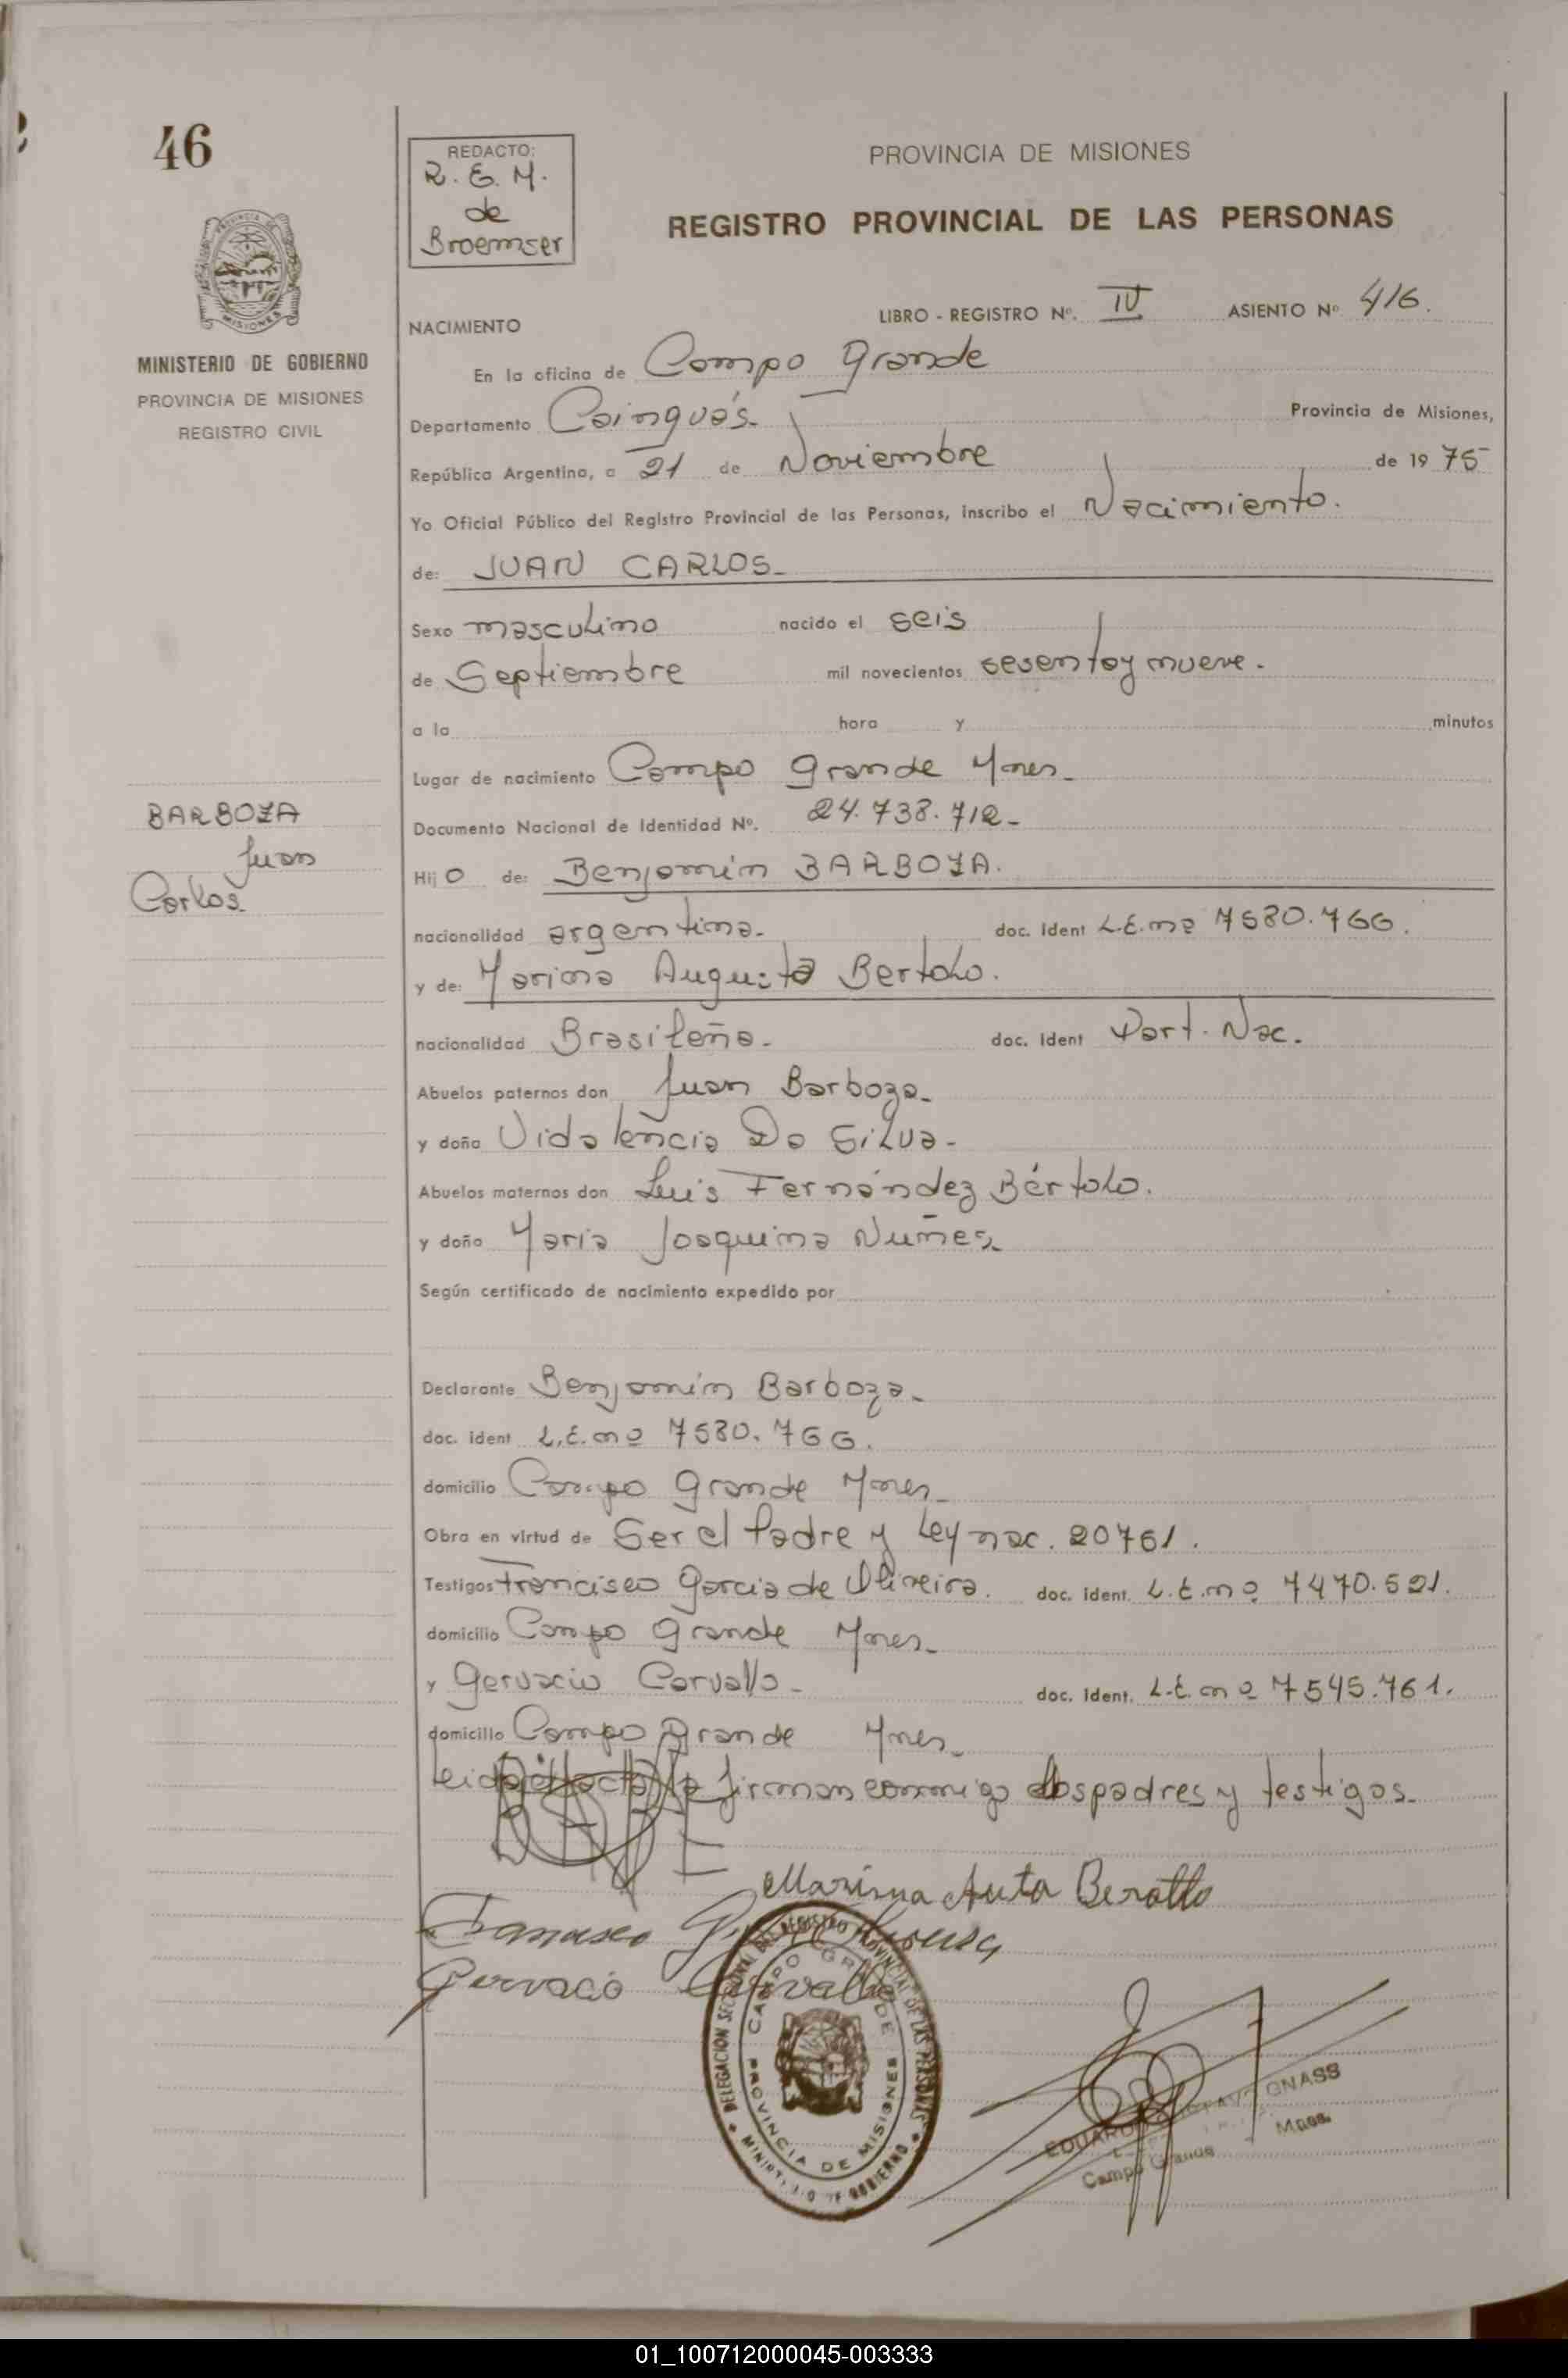 46
REDACTO:
R.E.M.
de
Broemser
PROVINCIA DE MISIONES
REGISTRO PROVINCIAL DE LAS PERSONAS
MINISTERIO DE GOBIERNO
PROVINCIA DE MISIONES
REGISTRO CIVIL
NACIMIENTO
LIBRO - REGISTRO Nº. IV ASIENTO Nº 416.
En la oficina de Campo Grande
Departamento Cainguás. Provincia de Misiones,
República Argentina, a 21 de Noviembre de 1975
Yo Oficial Público del Registro Provincial de las Personas, inscribo el Nacimiento.
de: JUAN CARLOS_
Sexo masculino nacido el seis
de Septiembre mil novecientos sesenta y nueve.
a la hora y minutos
Lugar de nacimiento Campo Grande Mnes_
BARBOZA
Juan
Carlos
Documento Nacional de Identidad Nº. 24.738.712_
Hijo de: Benjamín BARBOZA.
nacionalidad argentina. doc. Ident L.E.nº 7580.766.
y de: Marina Augusta Bertolo.
nacionalidad Brasileña. doc. Ident Part. Nac.
Abuelos paternos don Juan Barboza_
y doña Vidalencia Da Silva_
Abuelos maternos don Luis Fernández Bértolo.
y doña María Joaquina Nuñes_
Según certificado de nacimiento expedido por
Declarante Benjamín Barboza_
doc. ident L.E.nº 7580.766.
domicilio Campo Grande Mnes_
Obra en virtud de Ser el Padre y Ley nac. 20761.
Testigos Francisco Garcia de Oliveira. doc. ident. L.E.nº 7470.521.
domicilio Campo Grande Mnes_
y Gervacio Carvallo_ doc. Ident. L.E.nº 7545.761.
domicilio Campo Grande Mnes_
Leida el acta la firman conmigo los padres y testigos.
Marisna Auta Berotto
Gervacio Carvallo
DELEGACION SECCIONAL DEL REGISTRO PROVINCIAL DE LAS PERSONAS
MINISTERIO DE GOBIERNO
CAMPO GRANDE
PROVINCIA DE MISIONES
EDUARDO GUSTAVO GNASS
Campo Grande Mnes.
01_100712000045-003333